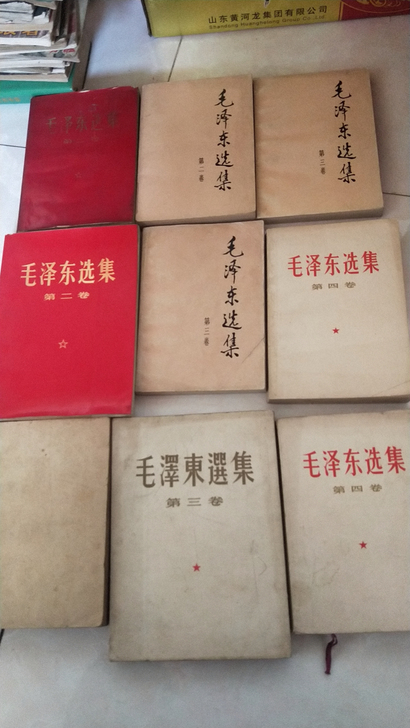 山东黄河龙集团有限公司
Shandong Huanghelong Group Co.,Ltd
毛泽东选集
毛泽东选集
第二卷
毛泽东选集
第三卷
毛泽东选集
第二卷
毛泽东选集
第三卷
毛泽东选集
第四卷
毛澤東選集
第三卷
毛泽东选集
第四卷